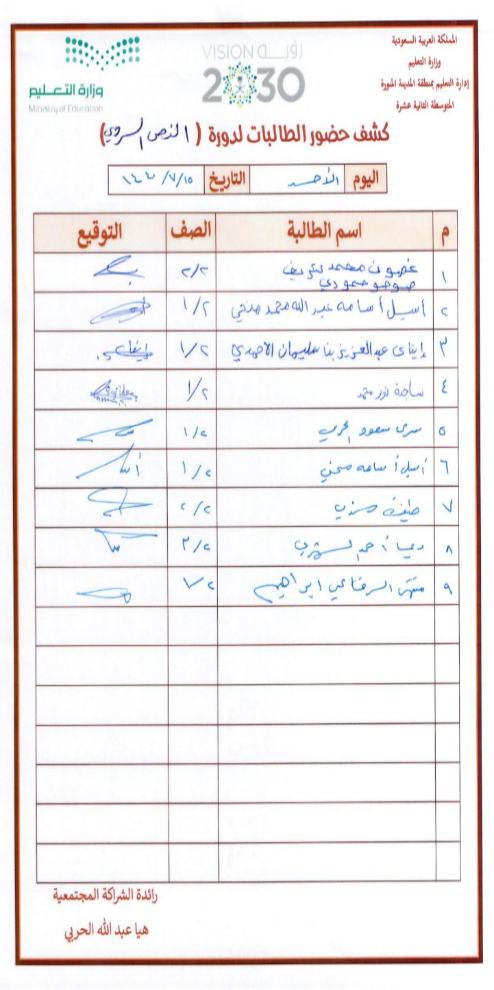 المملكة العربية السعودية
وزارة التعليم
إدارة التعليم بمنطقة المدينة المنورة
المتوسطة الثانية عشرة
رؤية VISION
2030
وزارة التعليم
Ministry of Education
كشف حضور الطالبات لدورة ( النص السردي )
اليوم الأحد التاريخ ١٥/٧/١٤٤
م اسم الطالبة الصف التوقيع
١ غصون محمد شريف ٢/٢
٢ أسيل أسامه عبد الله محمد ١/٢
٣ عبدالعزيز بنا سليمان الأحمدي ١/٢
٤ ساجدة نور محمد ١/٢
٥ سعود الحربي ١/٢
٦ أسيل أسامه ١/٢
٧ ٢/٢
٨ ديما أحمد ٣/٢
٩ الرفاعي ابراهيم ١/٢
رائدة الشراكة المجتمعية
هيا عبد الله الحربي